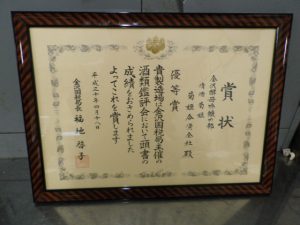 賞状
金沢酵母吟醸の部
清酒 菊姫
菊姫合資会社 殿
優等賞
貴製造場は金沢国税局主催の
酒類鑑評会において頭書の
成績をおさめられました
よってこれを賞します
平成三十年四月十八日
金沢国税局長
福地啓子